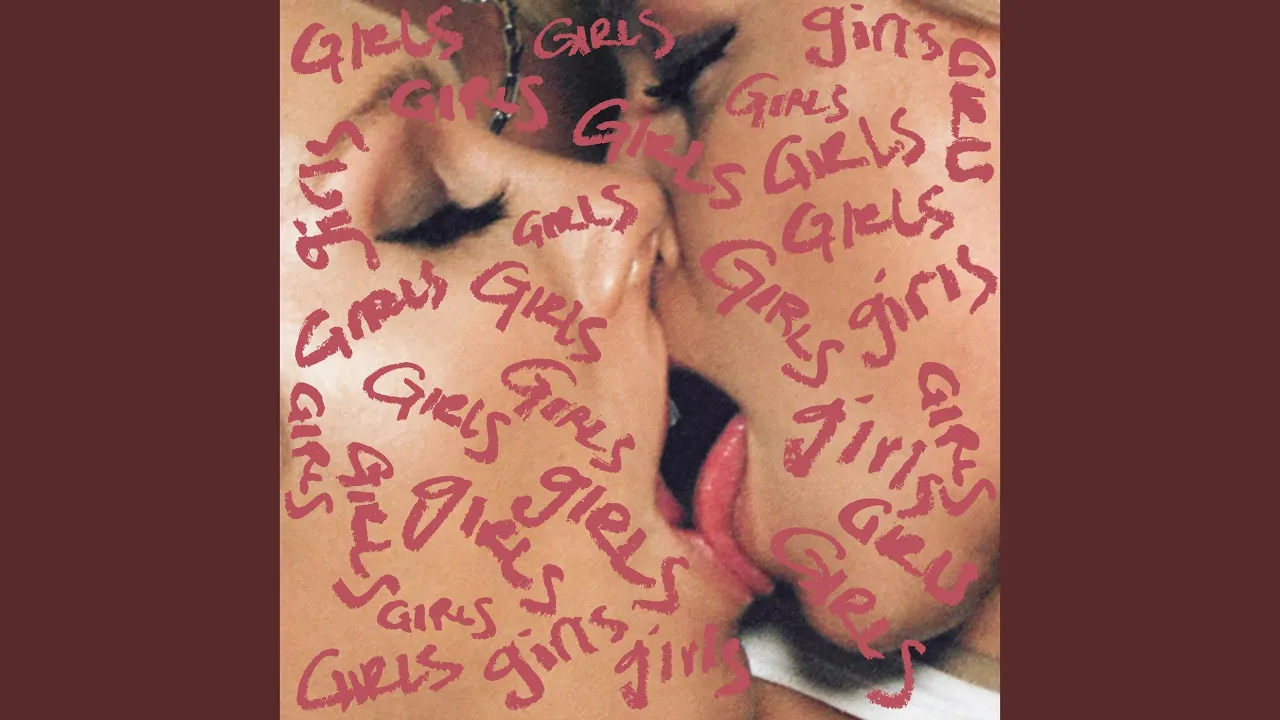 GIRLS
GIRLS
girls
GIRLS
GIRLS
GIRLS
GIRLS
girls
GIRLS
GIRLS
GIRLS
GIRLS
GIRLS
GIRLS
girls
GIRLS
GIRLS
GIRLS
GIRLS
GIRLS
girls
GIRLS
gIRLS
gIRLS
GIRLS
GIRLS
GIRLS
girls
GIRLS
girls